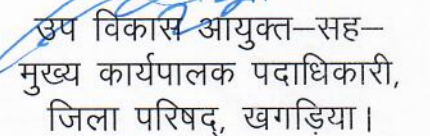 उप विकास आयुक्त–सह–
मुख्य कार्यपालक पदाधिकारी,
जिला परिषद्, खगड़िया।